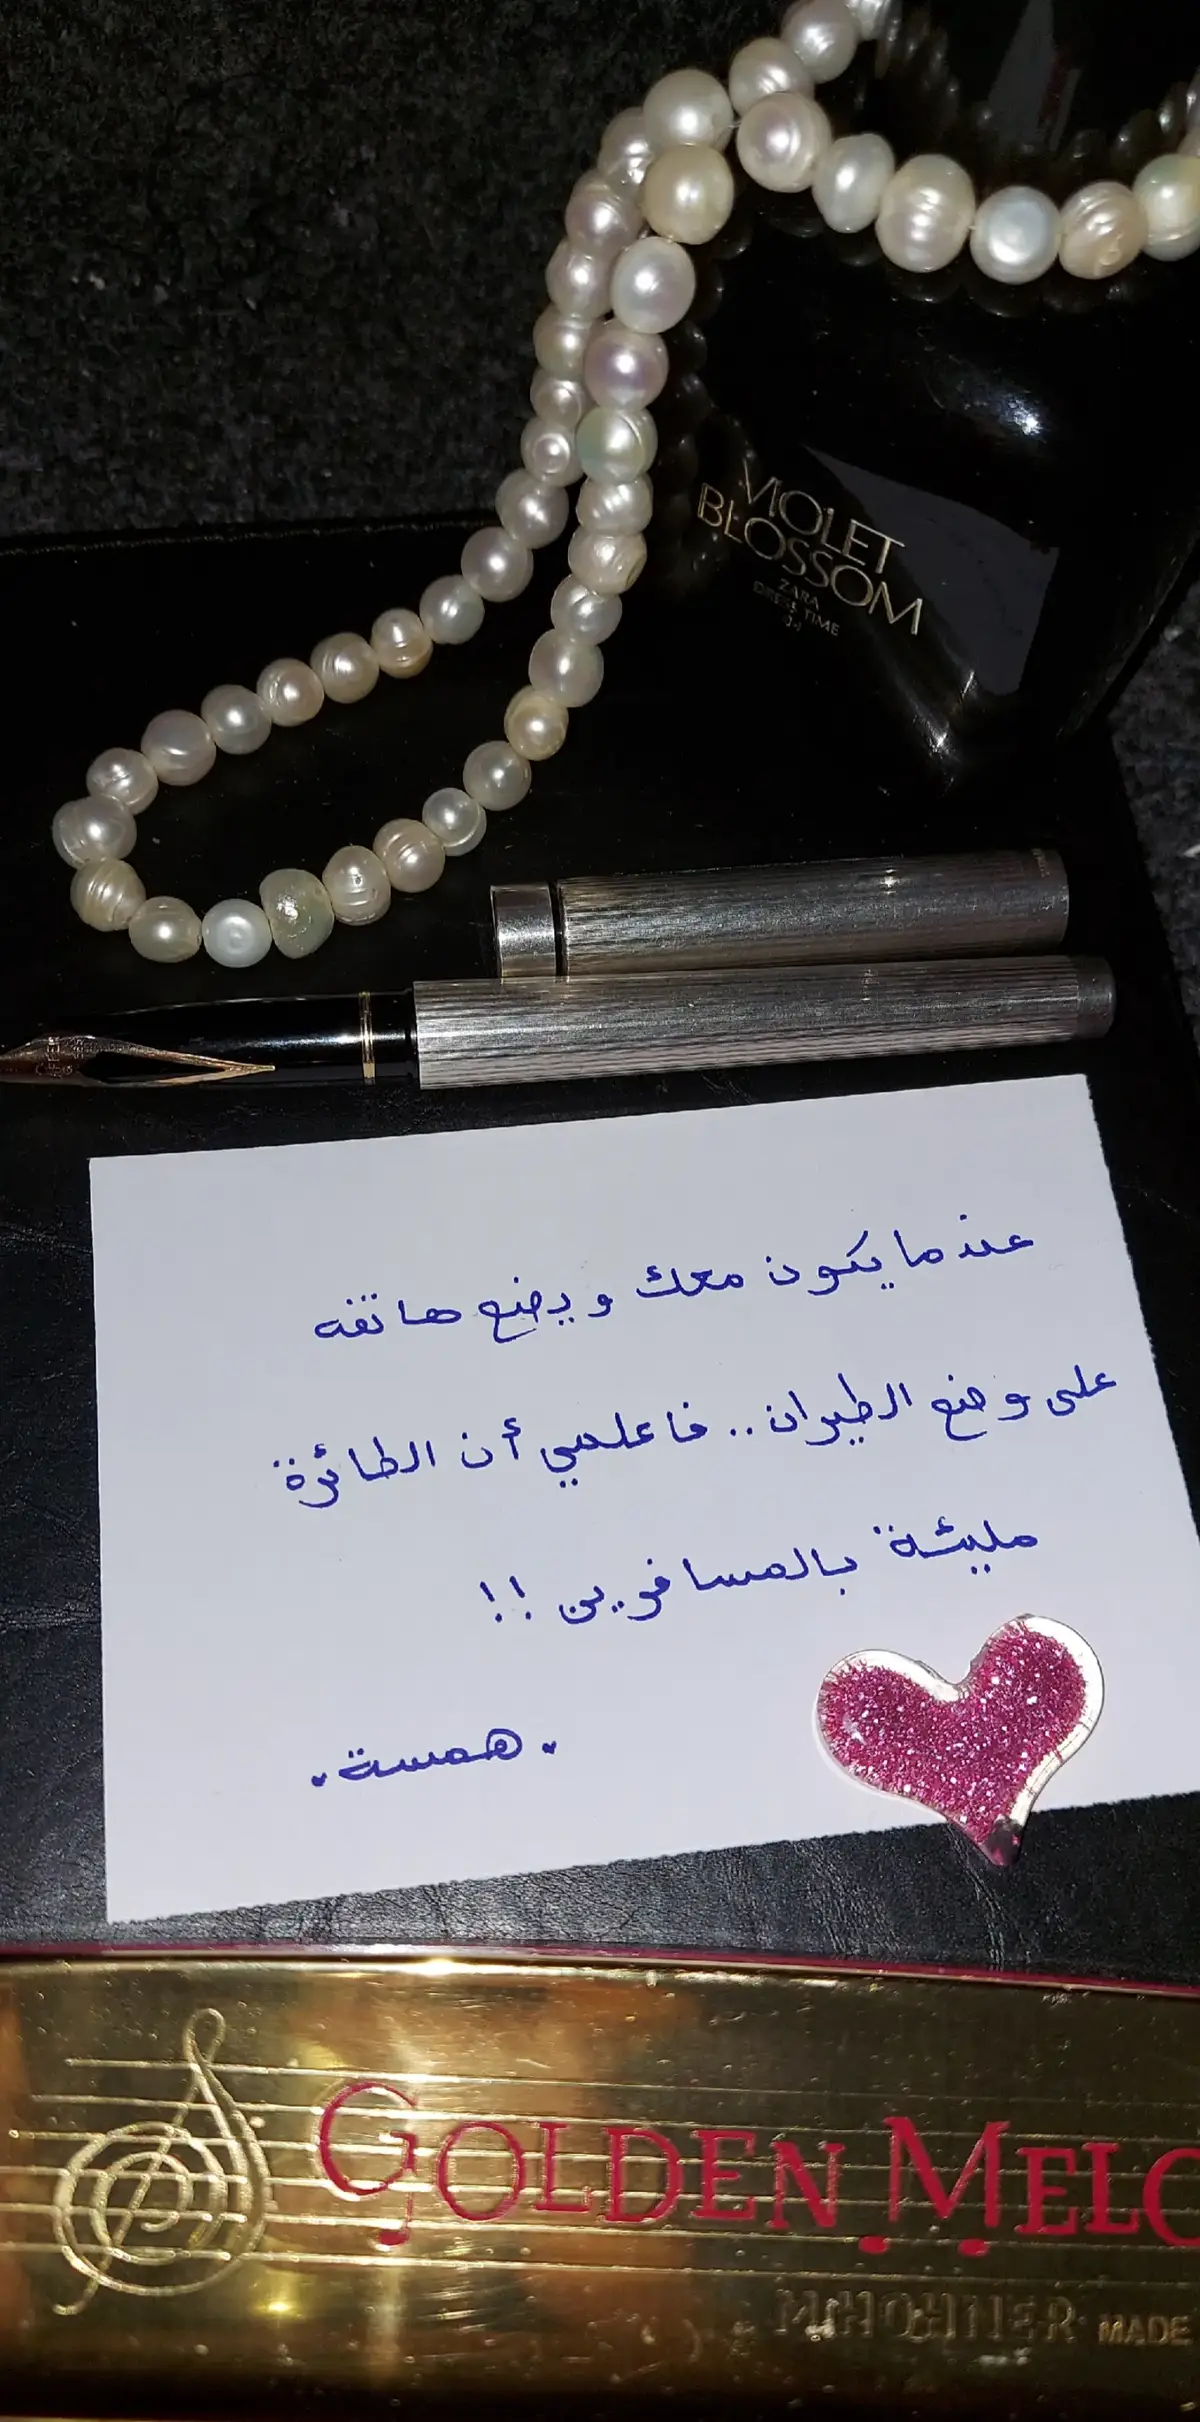 VIOLET
BLOSSOM
ZARA
عندما يكون معك ويضع هاتفه
على وضع الطيران.. فاعلمي أن الطائرة
مليئة بالمسافرين !!
. همسة .
GOLDEN MELO
M. HOHNER MADE